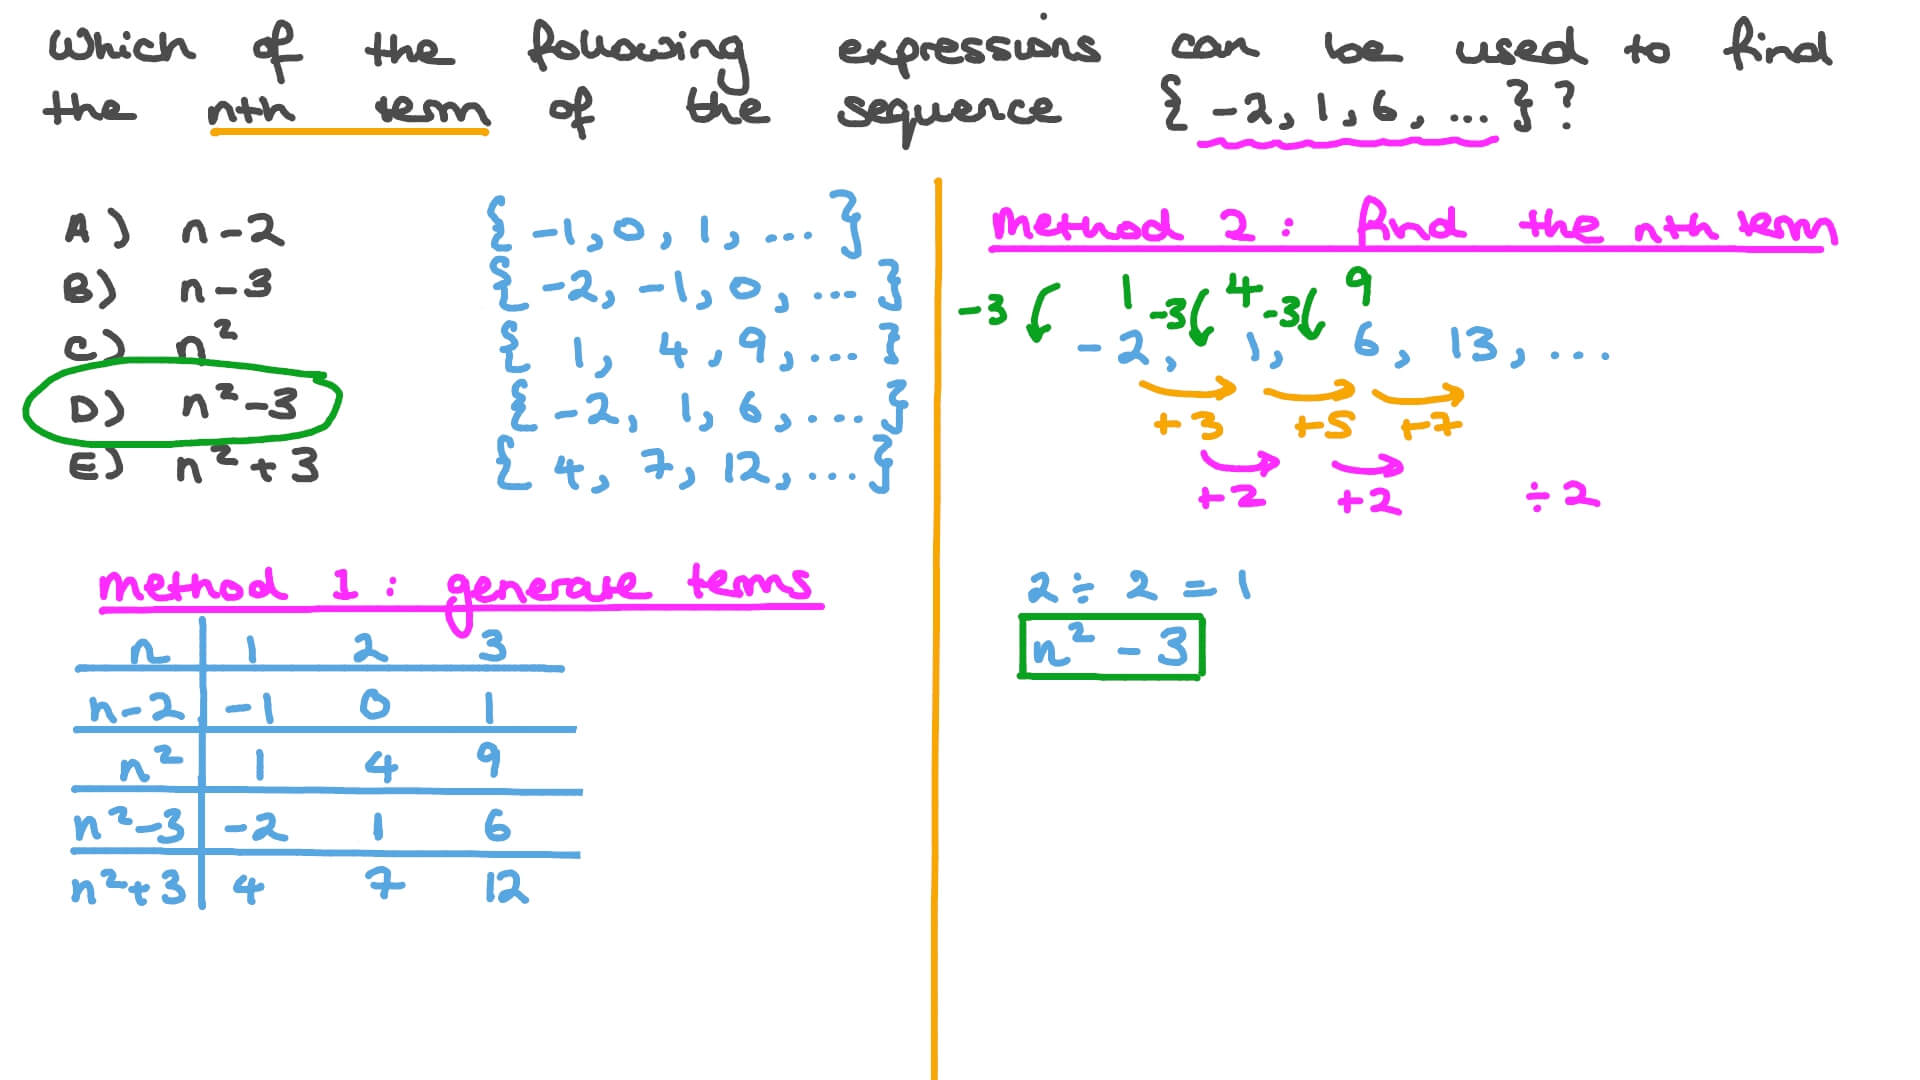 Which of the following expressions can be used to find
the nth term of the sequence { -2, 1, 6, ... }?
A) n-2 { -1, 0, 1, ... }
B) n-3 { -2, -1, 0, ... }
C) n² { 1, 4, 9, ... }
D) n²-3 { -2, 1, 6, ... }
E) n²+3 { 4, 7, 12, ... }
method 1: generate terms
n 1 2 3
n-2 -1 0 1
n² 1 4 9
n²-3 -2 1 6
n²+3 4 7 12
method 2: find the nth term
1 4 9
-3 -3 -3
-2, 1, 6, 13, ...
+3 +5 +7
+2 +2 ÷2
2 ÷ 2 = 1
n² - 3